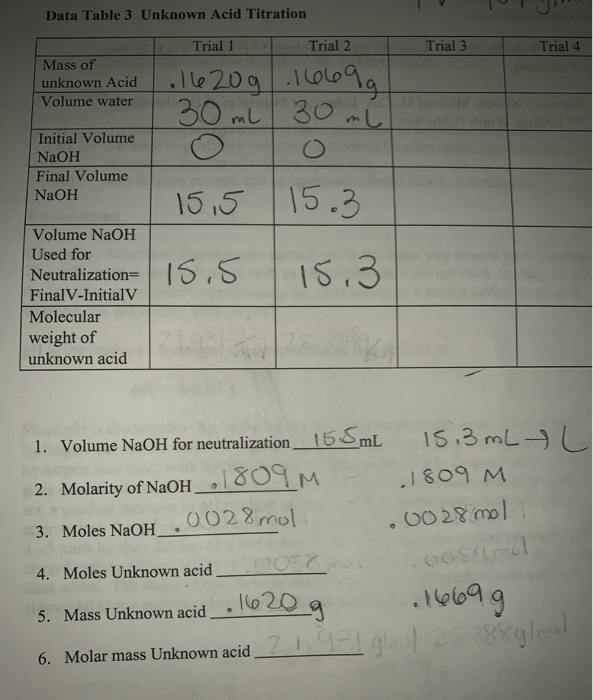 Data Table 3 Unknown Acid Titration
Trial 1 Trial 2 Trial 3 Trial 4
Mass of
unknown Acid .1620g .1669g
Volume water 30 mL 30 mL
Initial Volume
NaOH 0 0
Final Volume
NaOH 15.5 15.3
Volume NaOH
Used for
Neutralization= 15.5 15.3
FinalV-InitialV
Molecular
weight of
unknown acid
1. Volume NaOH for neutralization 15.5 mL 15.3 mL → L
2. Molarity of NaOH .1809 M .1809 M
3. Moles NaOH .0028 mol .0028 mol
4. Moles Unknown acid
5. Mass Unknown acid .1620 g .1669 g
6. Molar mass Unknown acid g/mol g/mol